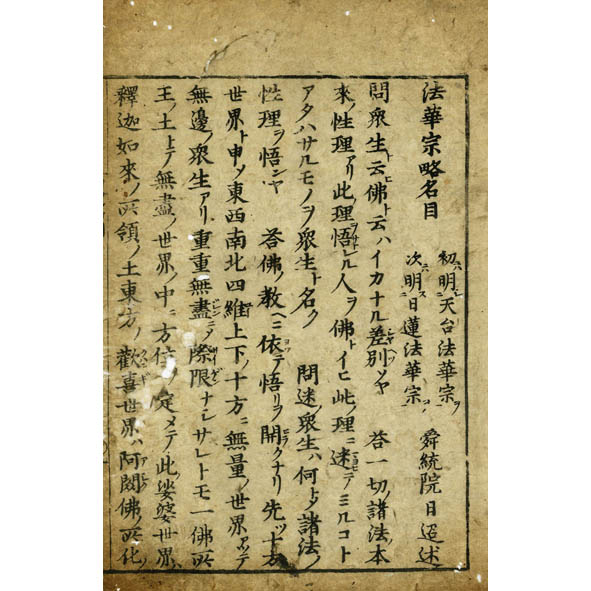 法華宗略名目
初ニハ明シ天台法華宗ヲ
次ニハ明ス日蓮法華宗ヲ
舜統院日迢述
問衆生ト云ヒ佛ト云ハイカナル差別ソヤ 答一切諸法ノ本
來ノ性理アリ此理ヲ悟レル人ヲ佛トイヒ此ノ理ニ迷テミルコト
アタハサルモノヲ衆生ト名ク 問迷衆生ハ何トメ諸法ノ
性理ヲ悟ンヤ 答佛ノ教ヘニ依テ悟リヲ開クナリ先ツ十方
世界ト申メ東西南北四維上下ノ十方ニ無量ノ世界アツテ
無邊ノ衆生アリ重重無盡ニメ際限ナシサレトモ一佛所
王ノ土トテ無盡ノ世界ノ中ニ方位ヲ定メテ此娑婆世界ハ
釋迦如來ノ所領ノ土東方ノ歡喜世界ハ阿閦佛ノ所化